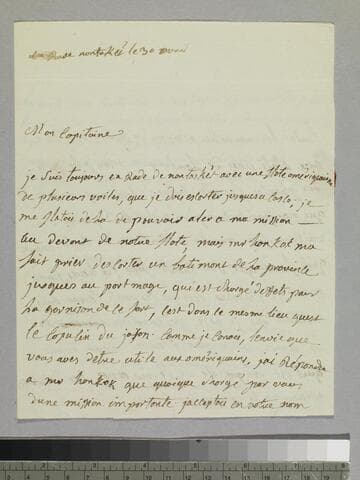 Rade nantasket le 30 avril
Mon Capitaine
je suis toujours en Rade de nantasket avec une flote amériquaine
de plusieurs voiles, que je dois escorter jusques a Casco; je
me flatois de la de pouvoir aler a ma mission
au devant de notre flote, mais mr honkok ma
fait prier descorter un batiment de la province
jusques au port mage, qui est chargé deffets pour
la garnison de le fort, cest dans le meme lieu quest
le du jason. Comme je conois lenvie que
vous aves detre utile aux amériquains, jai Répondu
a mr honkok que quoique chargé par vous
dune mission importante jacceptois en votre nom